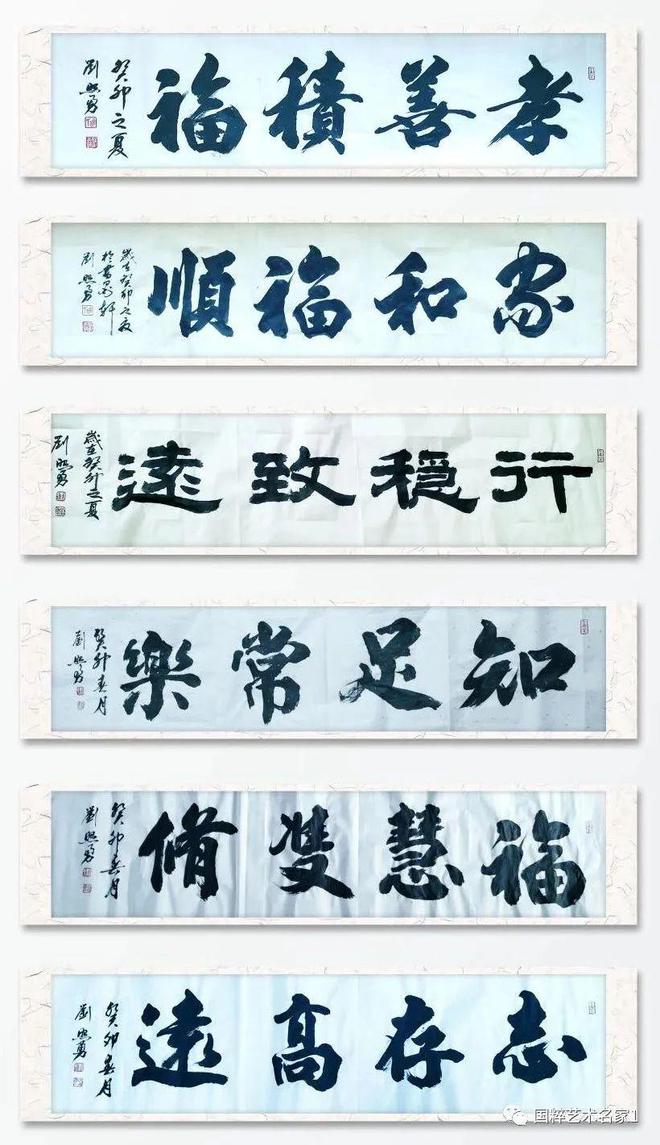 孝善積福
癸卯之夏
劉熙勇
家和福順
歲在癸卯之夏
劉熙勇
行穩致遠
歲在癸卯之夏
劉熙勇
知足常樂
癸卯春月
劉熙勇
福慧雙脩
癸卯春月
劉熙勇
志存高遠
癸卯春月
劉熙勇
国粹艺术名家1